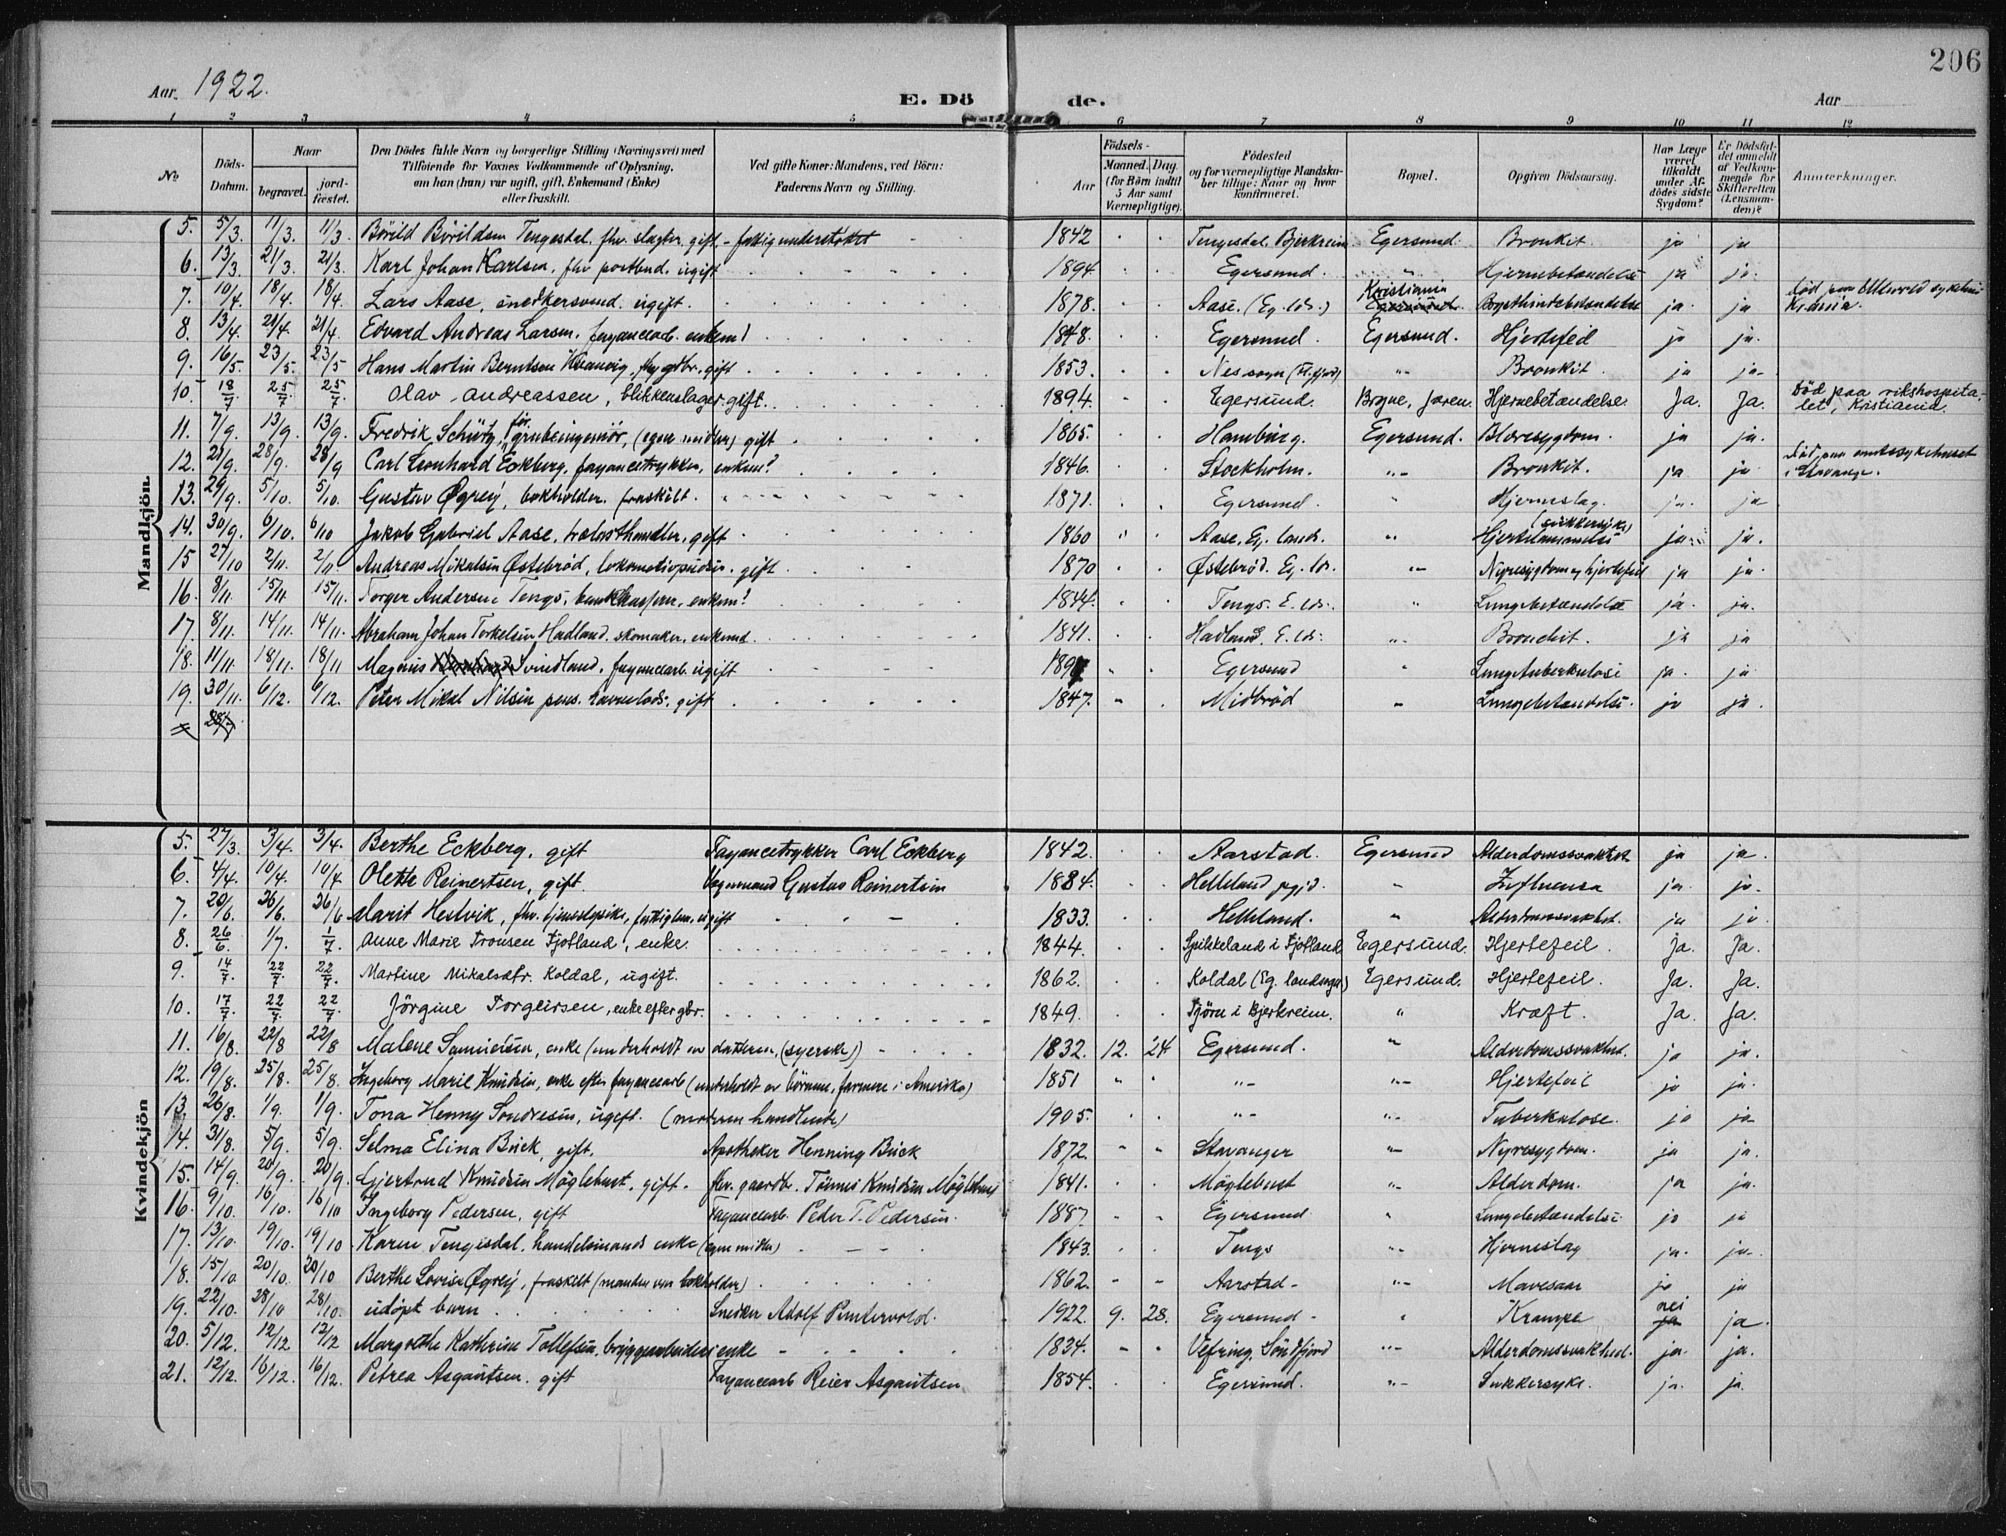 206
Aar 1922.
E. Döde.
Aar
1 2 3 4 5 6 7 8 9 10 11 12
No.
Döds-Datum.
Naar
begravet.
jord-fæstet.
Den Dödes fulde Navn og borgerlige Stilling (Næringsvei) med
Tilföiende for Voxnes Vedkommende af Oplysning,
om han (hun) var ugift, gift, Enkemand (Enke)
eller fraskilt.
Ved gifte Koner: Mandens, ved Börn:
Faderens Navn og Stilling.
Födsels-
Aar
Maaned. Dag.
(for Børn indtil
5 Aar samt
Værnepligtige).
Födested
og for værnepligtige Mandskaber tillige: Naar og hvor
konfirmeret.
Bopæl.
Opgiven Dödsaarsag.
Har Læge været tilkaldt under Afdödes sidste Sygdom?
Er Dödsfaldet anmeldt af Vedkommende for Skifteretten (Lensmanden)?
Anmærkninger.
Mandkjön.
5. 5/3. 11/3. 11/3. Börild Börildsen Tengesdal, fhv. slagter, gift - fattigunderstöttet 1842 Tengesdal, Bjerkreim Egersund. Bronkit. ja ja
6. 13/3. 21/3. 21/3. Karl Johan Karlsen, fhv postbud, ugift 1894 Egersund. " Hjernebetændelse ja ja.
7. 10/4. 18/4. 18/4. Lars Aase, snedkersvend. ugift. 1878. Aase. (Eg. lds.) Kristiania Brysthindebetændelse ja. ja Död paa Ullevold sykehus Kr.ania.
8. 13/4. 21/4. 21/4. Edvard Andreas Larsen, fayancearb. enkem. 1848. Egersund. Egersund. Hjertefeil ja ja.
9. 16/5. 23/5. 23/5 Hans Martin Berntsen, gift 1853. Nes sogn (Fl. fjord) "- Bronkit. ja ja-
10. 18/7 25/7. 25/7. Olav Andreassen, blikkenslager. gift. 1894. Egersund. Bryne, Jæren. Hjernebetændelse. Ja. Ja. Död paa rikshospitalet, Kristiania.
11. 7/9. 13/9. 13/9. Fredrik Schütz, för grubeingeniör, (egne midler) gift 1865. Hamburg. Egersund. Blæresygdom. ja ja.
12. 21/9. 28/9. 28/9 Carl Leonhard Eckberg, fayancetrykker, enkem? 1846. Stockholm. "- Bronkit. ja ja Död paa amtssykehuset i Stavanger.
13. 29/9. 5/10. 5/10. Gustav Øgreij, bokholder, fraskilt. 1871. Egersund " Hjerneslag. ja. ja
14. 30/9. 6/10. 6/10 Jakob Gabriel Aase, trælasthandler, gift 1860 Aase, Eg. lands. " Hjertelammelse (sukkersyke) ja ja.
15 27/10 2/11. 2/11 Andreas Mikalsen Østebröd, lokomotivpudser. gift. 1870 Østebröd. Eg. lds. "- Nyresygdom og hjertefeil ja ja.
16. 8/11. 15/11. 15/11. Torger Andersen Tengs, bankkasserer, enkem? 1844. Tengs. E. lds. " Lungebetændelse ja. ja.
17. 8/11. 14/11. 14/11. Abraham Johan Torkelsen Hadland. skomaker, enkemd. 1841. Hadland. E. lds. "- Bronchit. ja ja
18. 11/11. 18/11. 18/11 Magnus Svindland, fayancearb. ugift Egersund " Lungetuberkulose ja. ja
19. 30/11. 6/12. 6/12. Peter Mikal Nilsen pens. havnelods. gift 1847. Midbröd " Lungebetændelse. ja ja.
Kvindekjön
5. 27/3. 3/4. 3/4. Berthe Eckberg, gift Fayancetrykker Carl Eckberg 1842. Aarstad. Egersund Alderdomssvakhet ja ja.
6. 4/4. 10/4. 10/4 Olette Reinertsen, gift. Vognmand Gustav Reinertsen 1884. Helleland pgjd. " Influensa ja. ja.
7. 20/6. 26/6. 26/6 Marit Hestvik, fhv. tjenestepike, fattiglem, ugift 1833. Helleland. " Alderdomssvakhet. ja ja
8. 26/6. 1/7. 1/7. Anne Marie Tronsen Fjotland, enke. 1844. Spikkeland i Fjotland Egersund. Hjertefeil. Ja. Ja.
9. 14/7. 22/7. 22/7. Martine Mikalsdtr. Koldal, ugift. 1862. Koldal (Eg. landsogn) Egersund. Hjertefeil. Ja. Ja.
10. 17/7. 22/7. 22/7. Jörgine Torgersen, enke efter gbr. 1849. Tjörn i Bjerkreim. " Kræft. Ja. Ja.
11. 16/8. 22/8 22/8 Malene Samuelsen, enke (underholdt av datteren, (syerske)) 1832. 12. 24 Egersund. " Alderdomssvakhet. ja ja.
12. 19/8. 25/8. 25/8. Ingeborg Marie Knudsen, enke efter fayancearb (underholdt av börnene, farmere i Amerika) 1851 "- "- Hjertefeil ja ja.
13. 26/8. 1/9. 1/9. Tona Henny Sondresen, ugift. (moderen handlende) 1905. "- "- Tuberkulose. ja ja
14. 31/8. 5/9. 5/9. Selma Elina Buck, gift. Apotheker Henning Buck 1872. Stavanger "- Nyresygdom. ja ja.
15. 14/9. 20/9. 20/9. Gjertrud Knudsen Möglebust, gift. fhv. gaardbr. Tönnes Knudsen Möglebust 1841. Möglebust "- Alderdom. ja ja.
16. 9/10. 16/10. 16/10 Ingeborg Pedersen, gift Fayancearb. Peder T. Pedersen. 1887. Egersund " Lungebetændelse. ja ja
17. 13/10. 19/10. 19/10 Karen Tengesdal, handelsmands enke (egne midler) 1843. Tengs "- Hjerneslag ja. ja.
18. 15/10. 20/10. 20/10 Berthe Lovise Øgreij, fraskilt (manden var bokholder) 1862. Aarstad- "- Mavesaar ja ja
19. 22/10. 28/10 28/10. udöpt barn Snedker Adolf Puntervold. 1922. 9. 28. Egersund- " Krampe nei ja.
20. 5/12. 12/12 12/12 Margrethe Kathrine Tollefsen, bryggearbeiders enke 1834. Vefring, Söndfjord "- Alderdomssvakhed. ja. ja.
21. 12/12. 16/12. 16/12. Petrea Asgautsen. gift Fayancearb Reier Asgautsen 1854. Egersund. "- Sukkersyke. ja. ja.